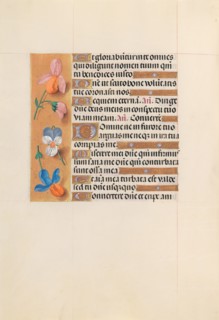 Et gloriabuntur in te omnes
qui diligunt nomen tuum qm
tu benedices iusto
Dne ut scuto bone voluntatis
tue coronasti nos
Requiem eternā. Añ. Dirige
dne deus meus in conspectu tuo
viam meam. Añ. Convertē
Domine ne in furore tuo
arguas me neqz in ira tua
corripias me
Miserere mei dne qm infirmus
sum sana me dne qm conturbata
sunt ossa mea
Et aīa mea turbata est valde
sed tu dne usquequo
Convertere dne et eripe anī